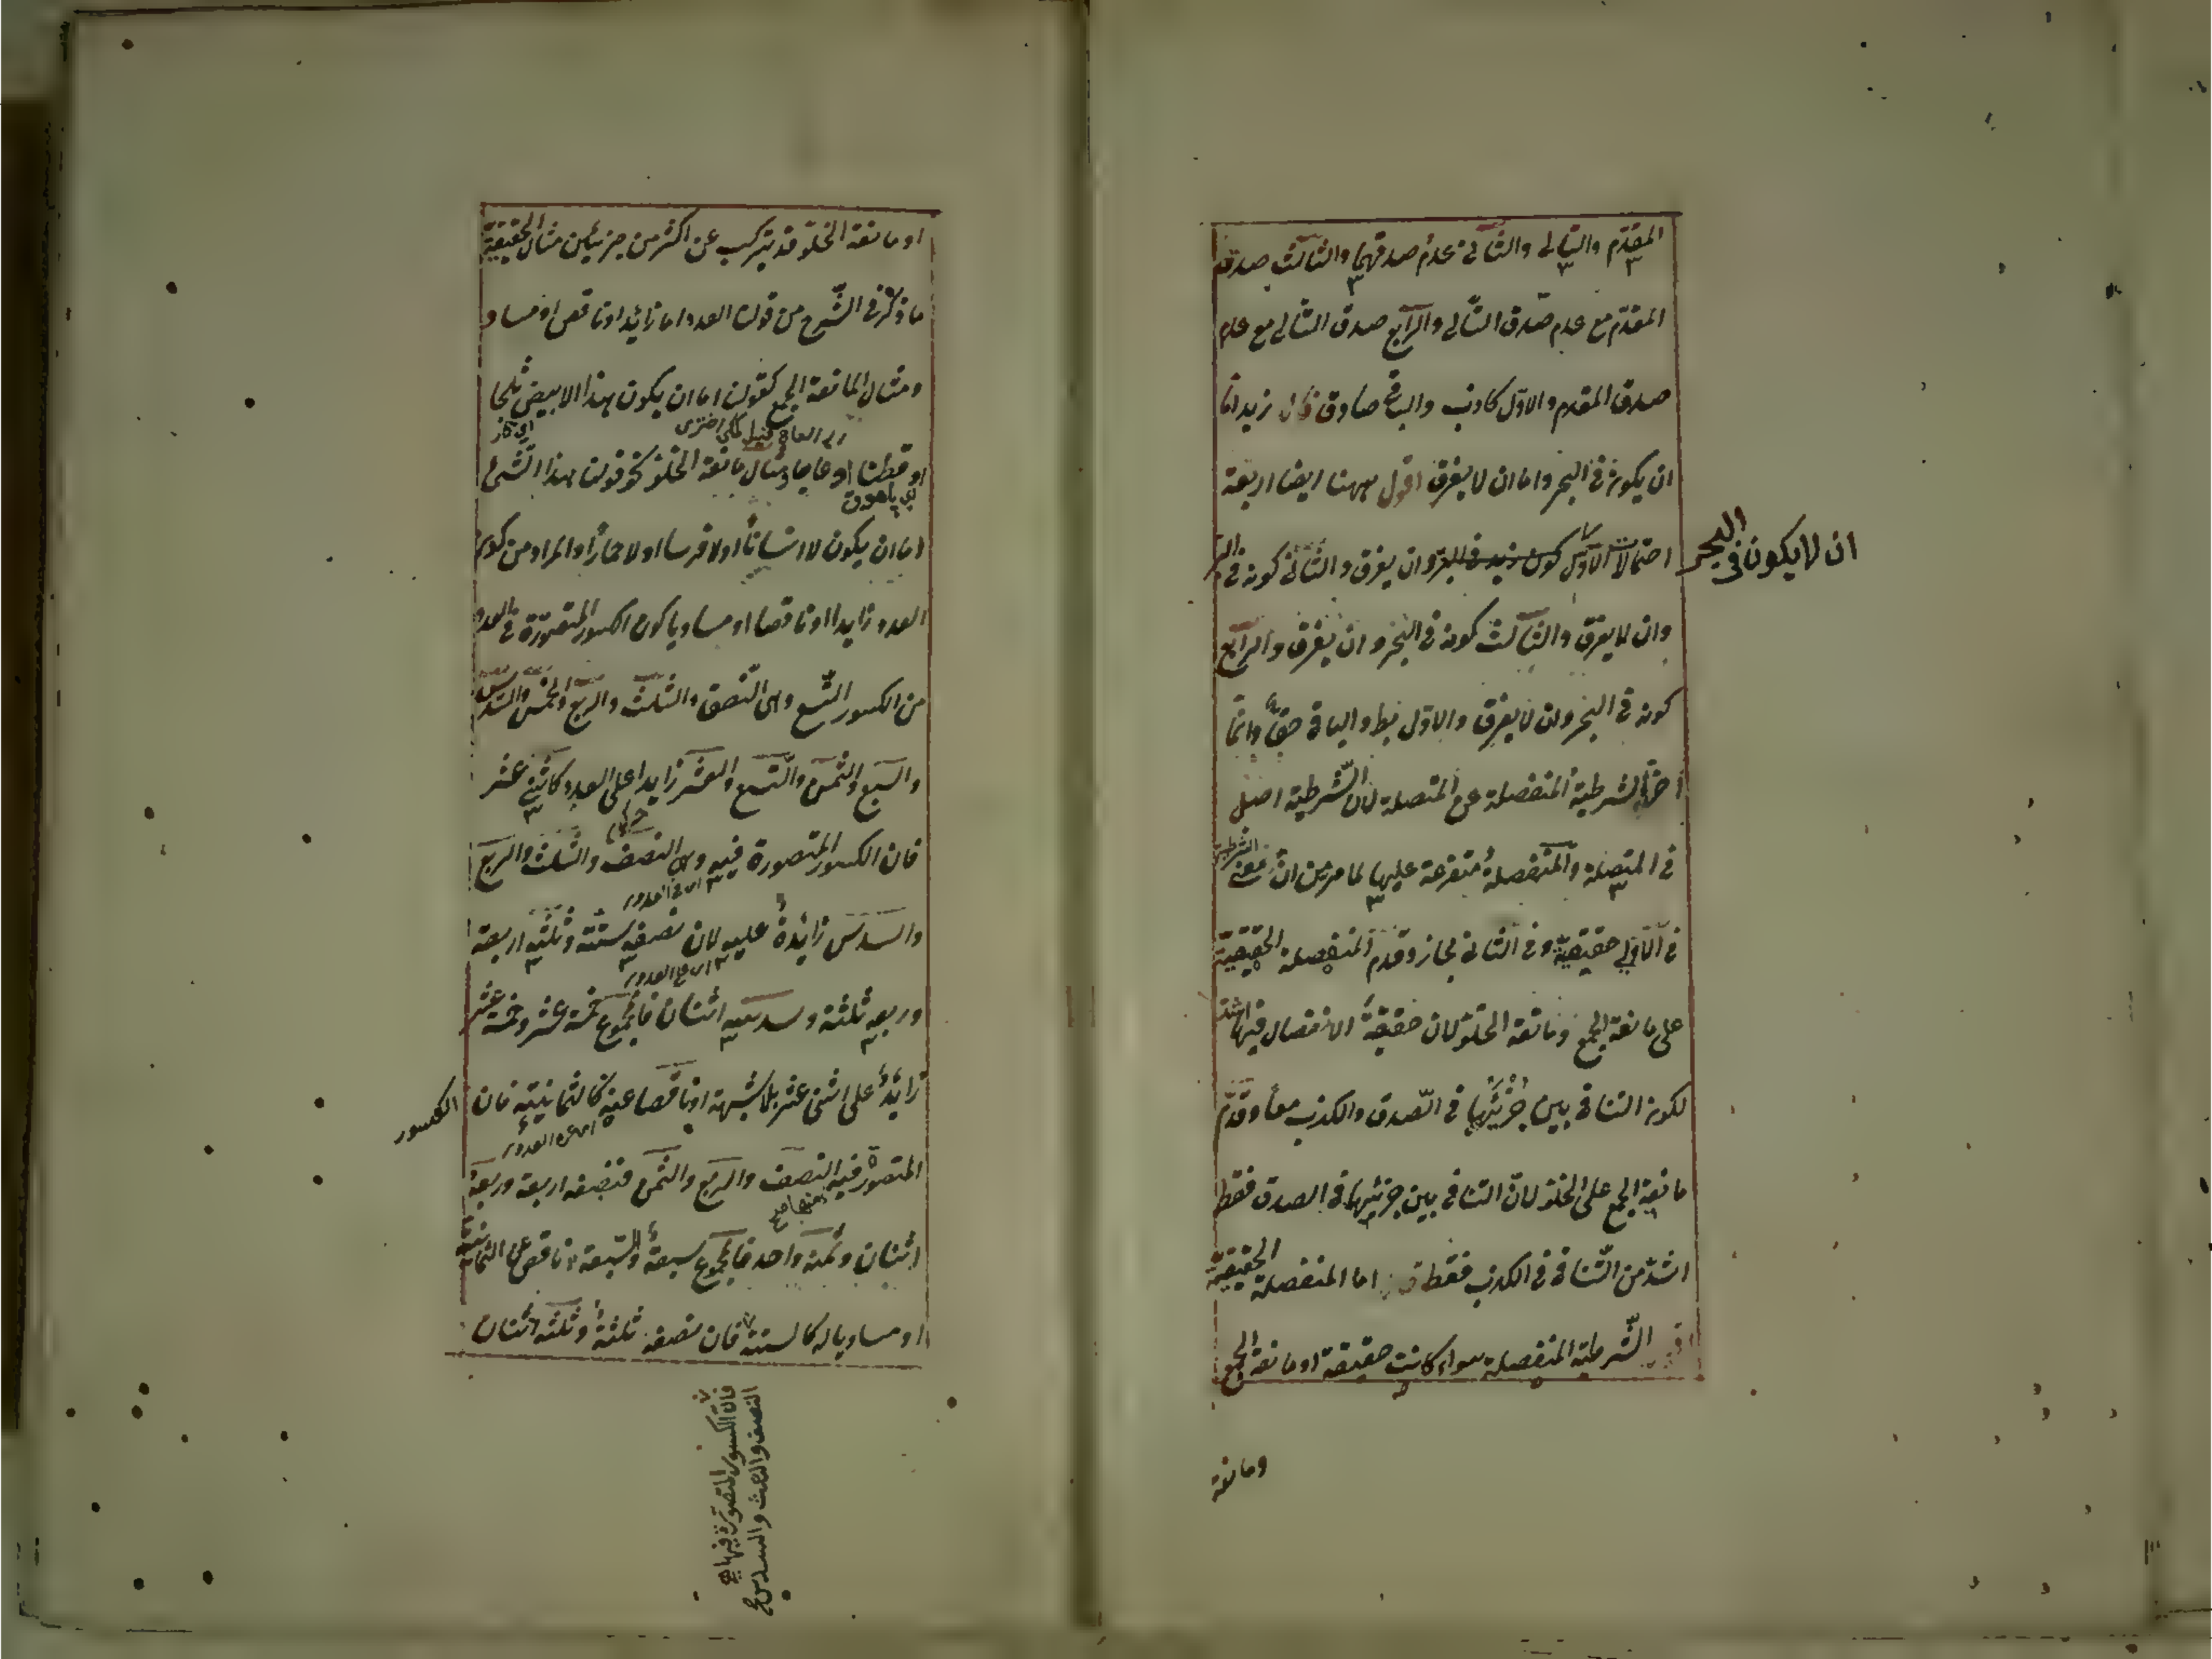 المقدّم والتالى والثانى عدم صدقهما والثالث صدق
المقدّم مع عدم صدق التالى والرابع صدق التالى مع عدم
صدق المقدم والاوّل كاذب والباقى صادق زيد اما
ان يكون فى البحر واما ان لا يغرق اقول ههنا ايضا اربعة
احتمالات الاوّل كون زيد فى البرّ وان يغرق والثانى كونه فى البر
ان لا يكون فى البحر
وان لا يغرق والثالث كونه فى البحر وان يغرق والرابع
كونه فى البحر وان لا يغرق والاوّل بط والباقى حق وانما
اخّر الشرطية المنفصلة عن المتصلة لان الشرطية اصل
فى المتصلة والمنفصلة متفرعة عليها لما مر من ان معنى الشرطية
فى الاولى حقيقية وفى الثانى مجاز وقدم المنفصلة الحقيقيّة
على مانعة الجمع ومانعة الخلوّ لان حقيقة الانفصال فيها اشدّ
لكون التنافى بين جزئيها فى الصّدق والكذب معا وقدّم
مانعة الجمع على الخلو لانّ التنافى بين جزئيها فى الصدق فقط
اشدّ من التّنافى فى الكذب فقط اما المنفصلة الحقيقيّة
الشّرطية المنفصلة سواء كانت حقيقة او مانعة الجمع
ومانعة
او مانعة الخلوّ قد يتركب عن اكثر من جزئين مثال الحقيقيّة
ما ذكر فى الشّرح من قوله العدد اما زائد او ناقص او مساو
ومثال المانعة الجمع كقولن اما ان يكون هذا الابيض ثلجا
او قطنا او عاجا ومثال مانعة الخلوّ نحو قولن هذا الشئ
اما ان يكون لا انسانا او لا فرسا او لا حمارا والمراد من كون
العدد زايدا او ناقصا او مساويا كون الكسور المتصوّرة فى العدد
من الكسور التّسع وهى النّصف والثلث والربع والخمس والسّدس
والسبع والثمن والتّسع والعشر زايدا على العدد كاثنى عشر
فان الكسور المتصورة فيه وهى النصف والثلث والربع
اى فى العدد
والسدس زائدة عليه لان نصفه ستّة وثلثه اربعة
اى على العدد
وربعه ثلثة وسدسه اثنان فالمجموع خمسة عشر وخمسة عشر
زائد على اثنى عشر بلا شبهة او ناقصا عنه كالثمانية فان
الكسور
اى عن العدد
المتصورة فيه النصف والربع والثمن فنصفه اربعة وربعه
اثنان وثمنه واحد فالمجموع سبعة والسّبعة ناقص عن الثمانية
او مساويا له كالستة فان نصفه ثلثة وثلثه اثنان
فان الكسور المتصورة فيها
النصف والثلث والسدس